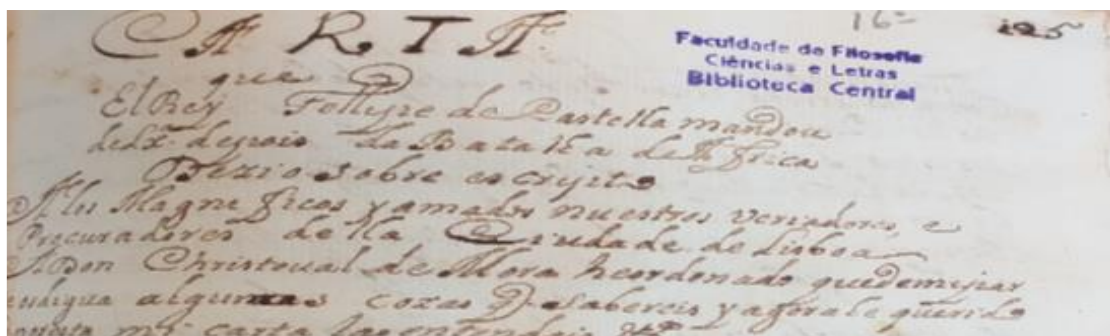 16 125
CARTA
Faculdade de Filosofia
Ciências e Letras
Biblioteca Central
que
El Rey Fellype de Castella mandou
depois da Batalha de Affrica
Dezia o sobre escryito
A los Magneficos y amados nuestros Veriadores, e
Procuradores de lla Ciudade de Lisboa
A Don Christoual de Mora he ordenado que de mi par
algumas cozas q sabereis y agora le querido
mi carta las entendais